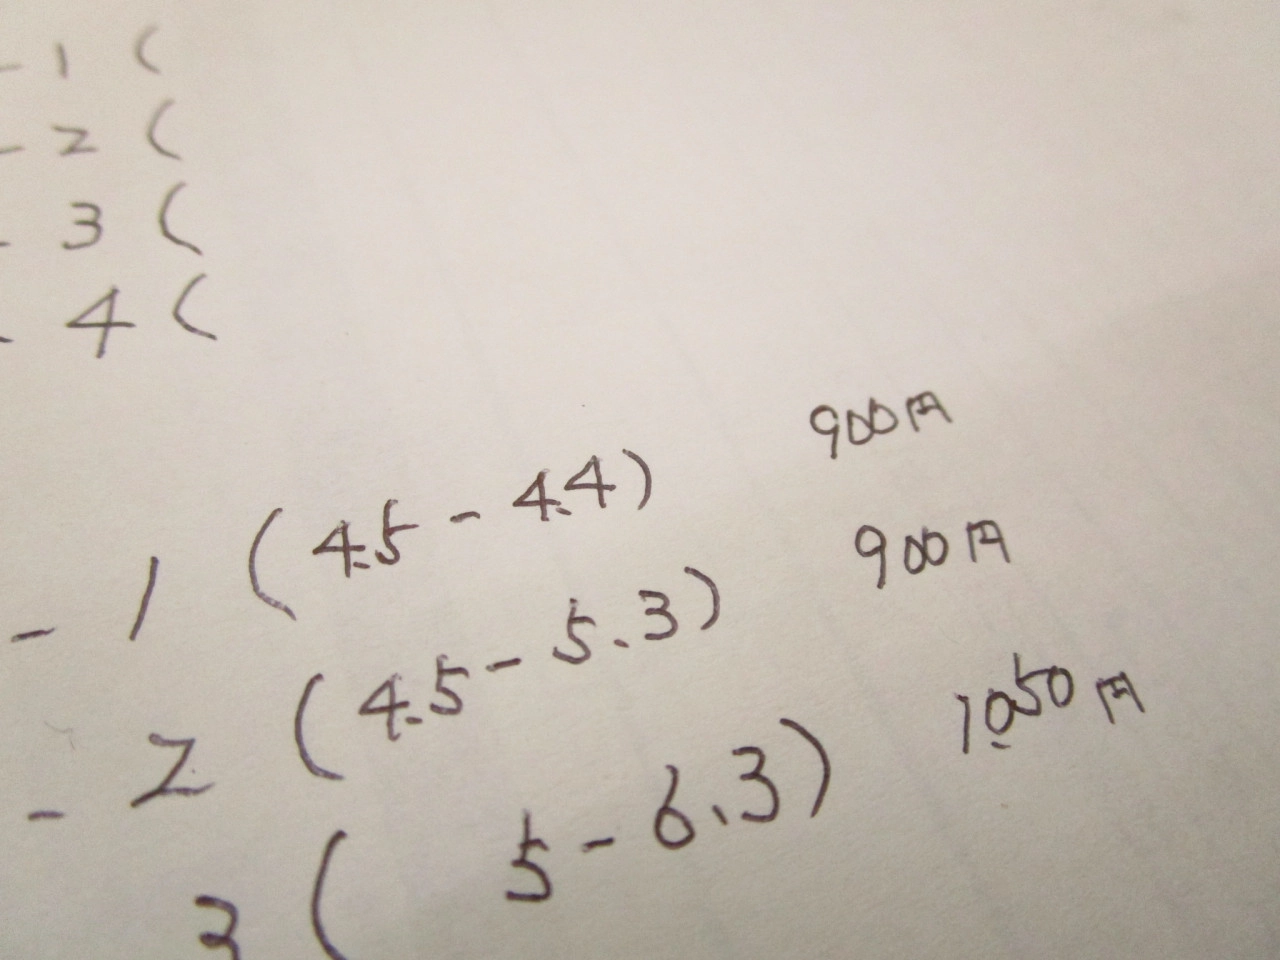 - 1 (
- 2 (
- 3 (
- 4 (
- 1 (4.5 - 4.4) 900円
- 2 (4.5 - 5.3) 900円
3 ( 5 - 6.3) 1050円